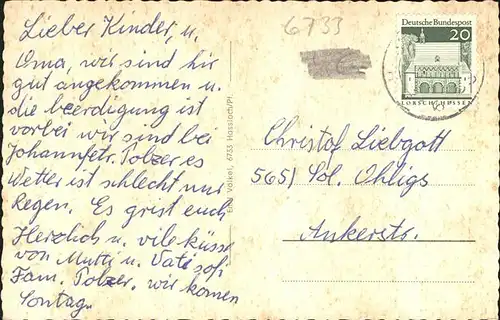 Lieber Kinder, u.
Oma, wir sind hir
gut angekommen u.
die beerdigung ist
vorbei wir sind bei
Johannfetr. Polzer es
Wetter ist schlecht nur
Regen. Es grist euch
Herzlich u. vile küsse
von Mutti u. Vati
Fam. Polzer. wir komen
Sontag.
Völkel, 6733 Hassloch/Pf.
6733
Deutsche Bundespost
20
LORSCH/HESSEN
Christof Liebgott
5651 Sol. Ohligs
Ankerstr.